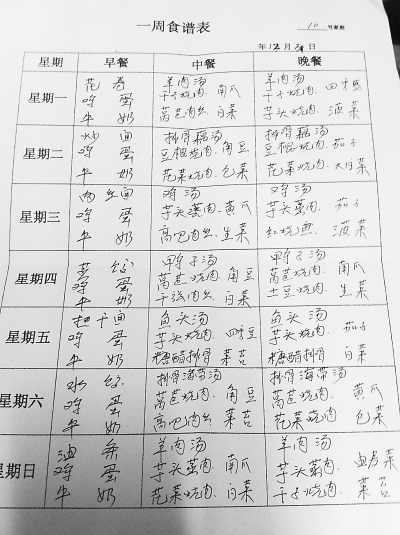 一周食谱表
10 号家庭
年12月 日
星期 早餐 中餐 晚餐
星期一
花卷 羊肉汤 羊肉汤
鸡蛋 干子烧肉 南瓜 干子烧肉 四季豆
牛奶 莴苣肉丝 白菜 芋头烧肉 菠菜
星期二
炒面 排骨藕汤 排骨藕汤
鸡蛋 豆棍烧肉 角豆 豆棍烧肉 茄子
牛奶 花菜烧肉 包菜 花菜烧肉 大白菜
星期三
肉丝面 鸡汤 鸡汤
鸡蛋 芋头蒸肉 黄瓜 芋头蒸肉 茄子
牛奶 生菜 红烧鱼 菠菜
星期四
鸭子汤 鸭子汤
鸡蛋 莴苣烧肉 角豆 莴苣烧肉 南瓜
牛奶 干张肉丝 白菜 土豆烧肉 生菜
星期五
热干面 鱼头汤 鱼头汤
鸡蛋 芋头烧肉 四季豆 芋头烧肉 茄子
牛奶 糖醋排骨 菜苔 糖醋排骨 白菜
星期六
排骨海带汤 排骨海带汤
鸡蛋 莴苣烧肉 角豆 莴苣烧肉 黄瓜
牛奶 菜苔 花菜烧肉 包菜
星期日
油条 羊肉汤 羊肉汤
鸡蛋 芋头蒸肉 南瓜 芋头蒸肉
牛奶 花菜烧肉 白菜 干子烧肉 菜苔